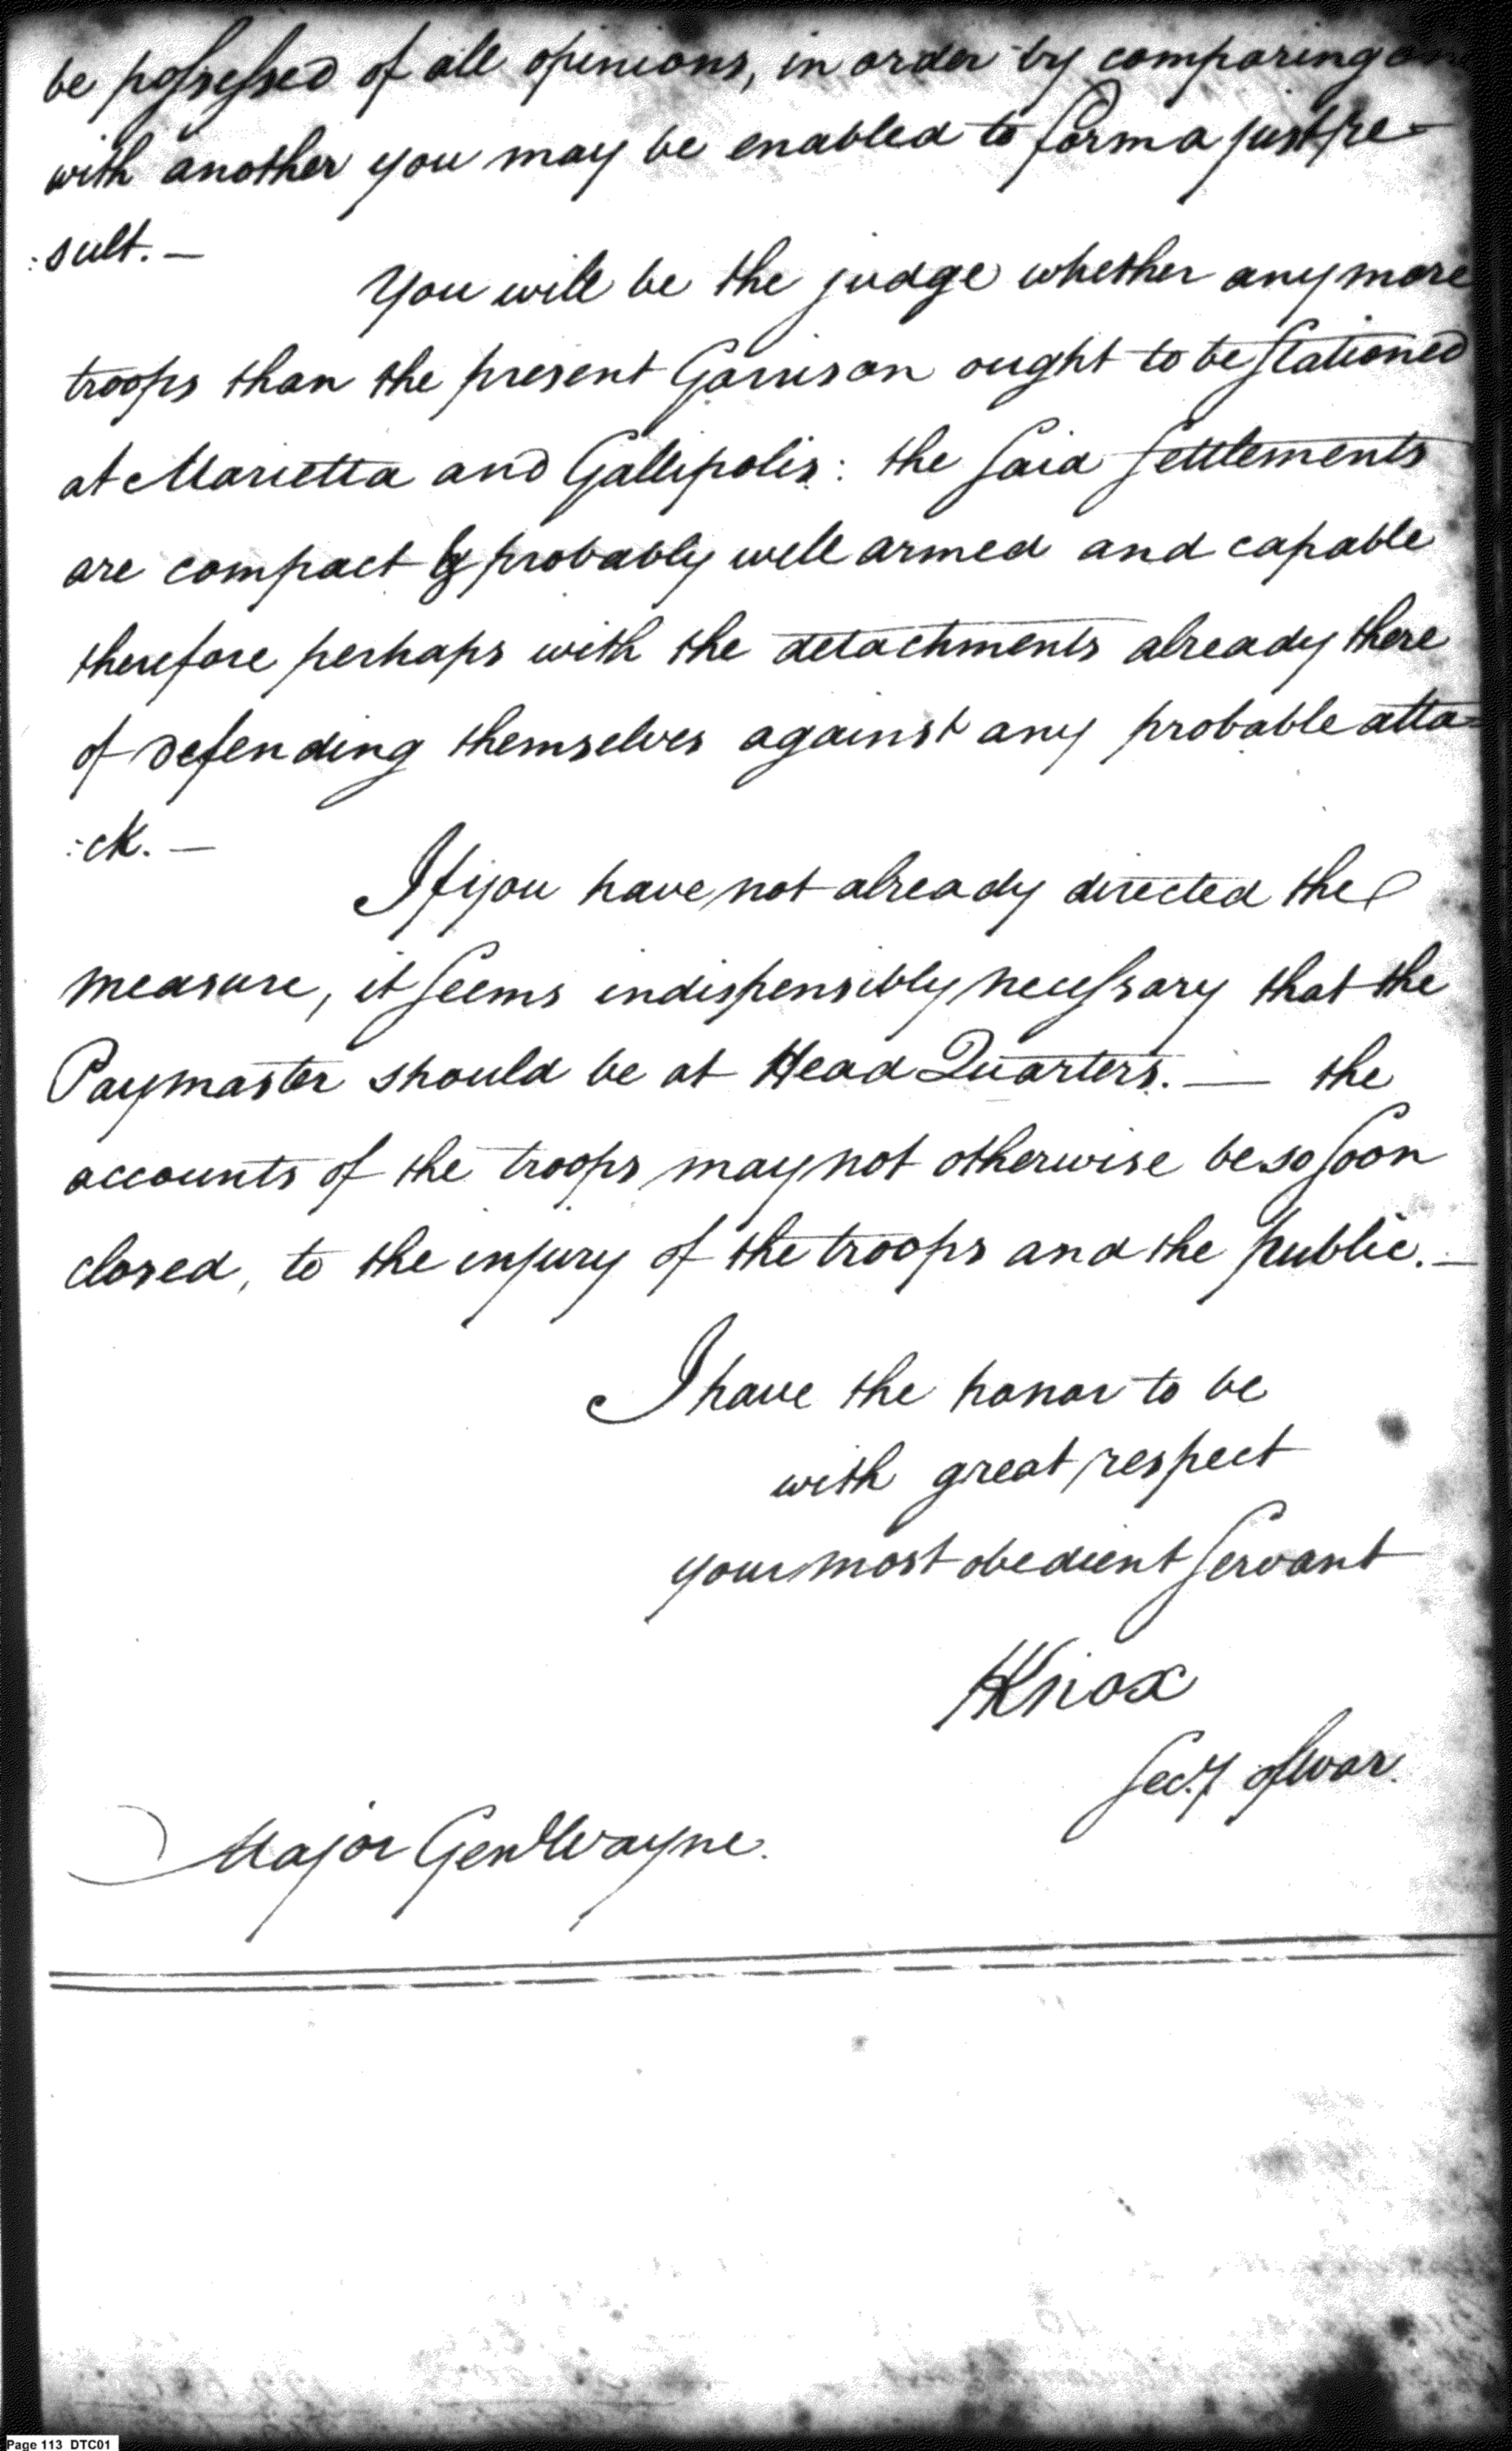 be possessed of all opinions, in order by comparing one
with another you may be enabled to form a just re-
:sult. —
You will be the judge whether any more
troops than the present Garrison ought to be stationed
at Marietta and Gallipolis: the said settlements
are compact & probably well armed and capable
therefore perhaps with the detachments already there
of defending themselves against any probable atta=
:ck. —
If you have not already directed the
measure, it seems indispensibly necessary that the
Paymaster should be at Head Quarters. — the
accounts of the troops may not otherwise be so soon
closed, to the injury of the troops and the public. —
I have the honor to be
with great respect
your most obedient servant
HKnox
Sec.y of war.
Major Genl Wayne.
Page 113 DTC01